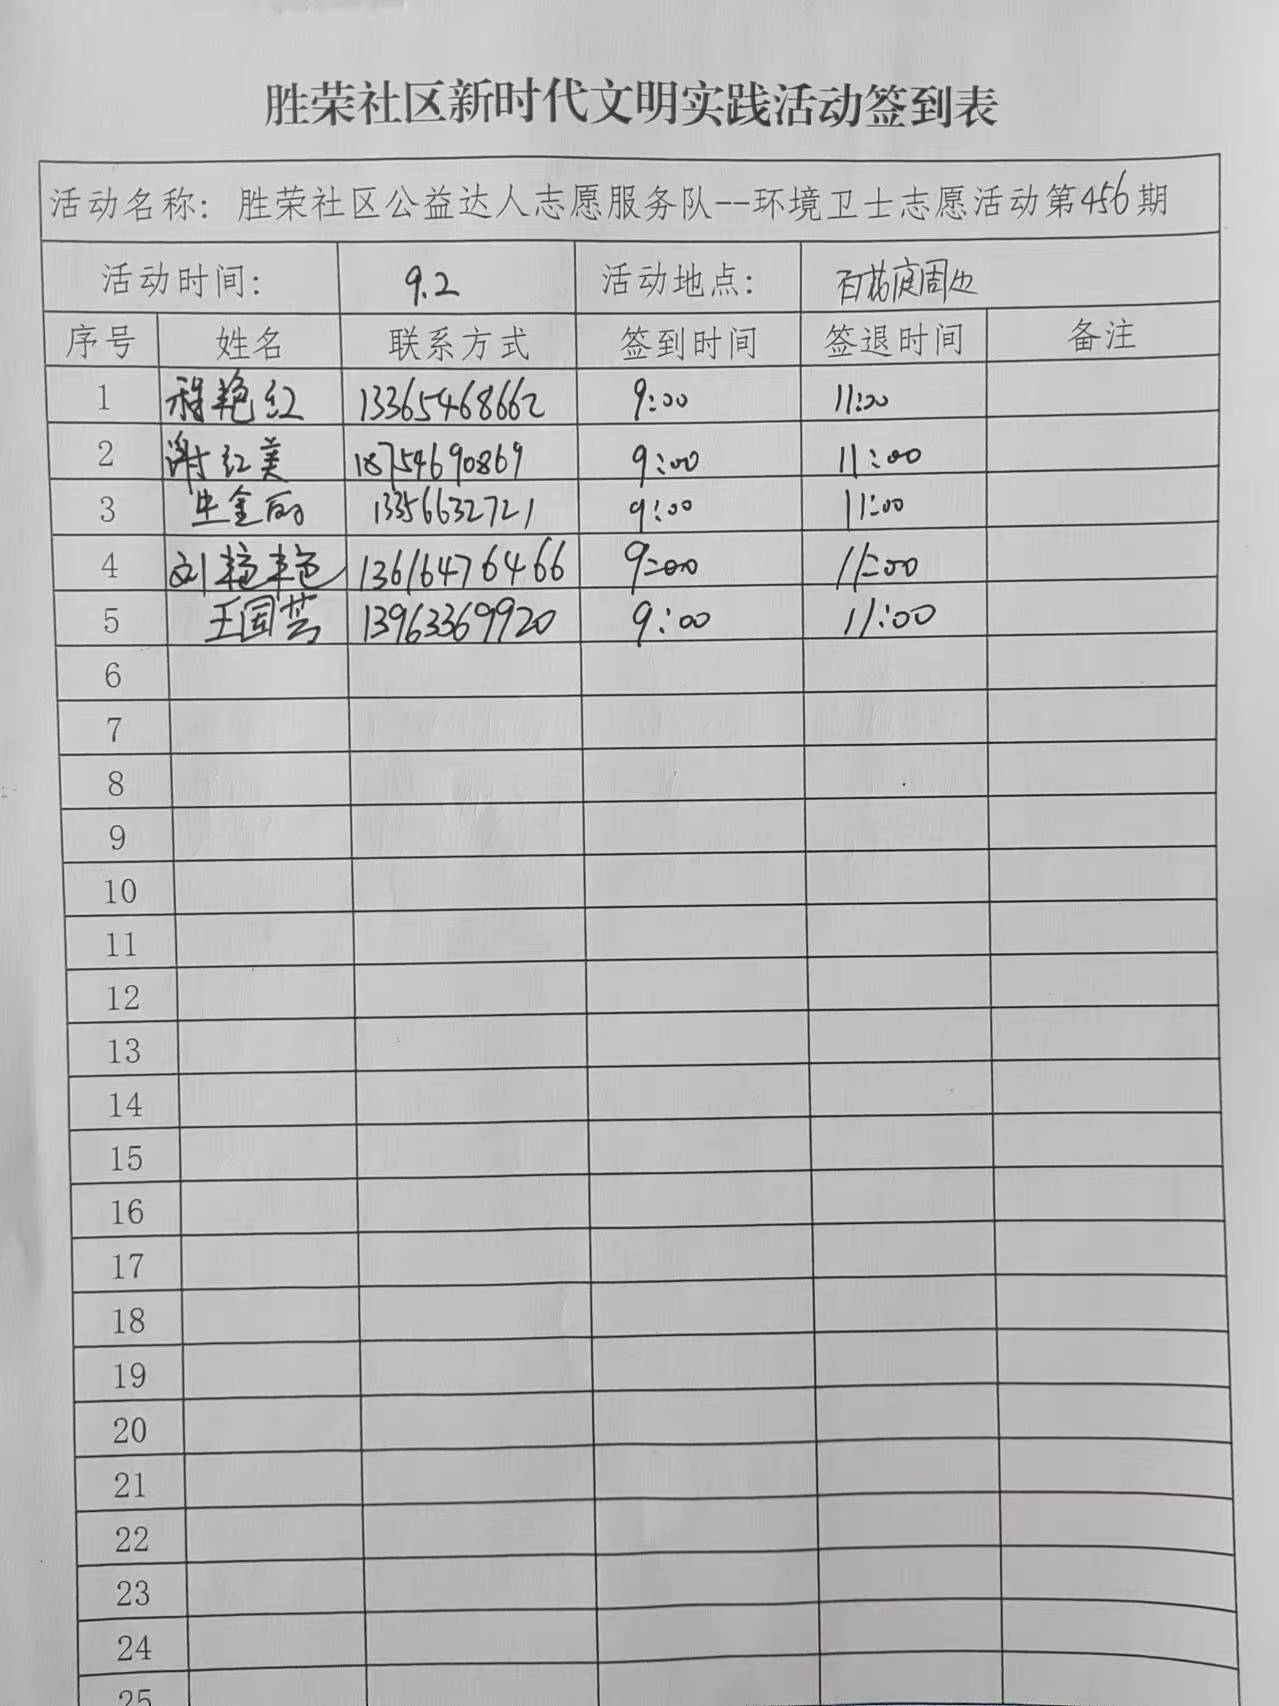 胜荣社区新时代文明实践活动签到表
活动名称：胜荣社区公益达人志愿服务队--环境卫士志愿活动第456期
活动时间： 9.2 活动地点： 百花庭周边
序号 姓名 联系方式 签到时间 签退时间 备注
1 程艳红 13365468662 9:00 11:00
2 谢红美 18754690869 9:00 11:00
3 生金丽 13356632721 9:00 11:00
4 刘艳艳 13616476466 9:00 11:00
5 王国芸 13963369920 9:00 11:00
6
7
8
9
10
11
12
13
14
15
16
17
18
19
20
21
22
23
24
25